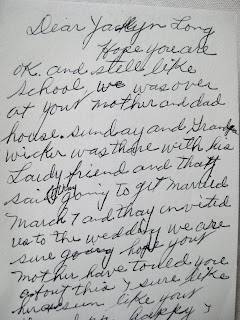 Dear Jacklyn Long
Hope you are
OK. and still like
School, we was over
at your mother and dad
house. Sunday and Grandpa
wicker was there with his
Laidy friend and thay
said thay going to get married
March 7 and thay invited
us to the wedding we are
sure going hope your
mother have tould you
about this I sure like
her
like your
happy